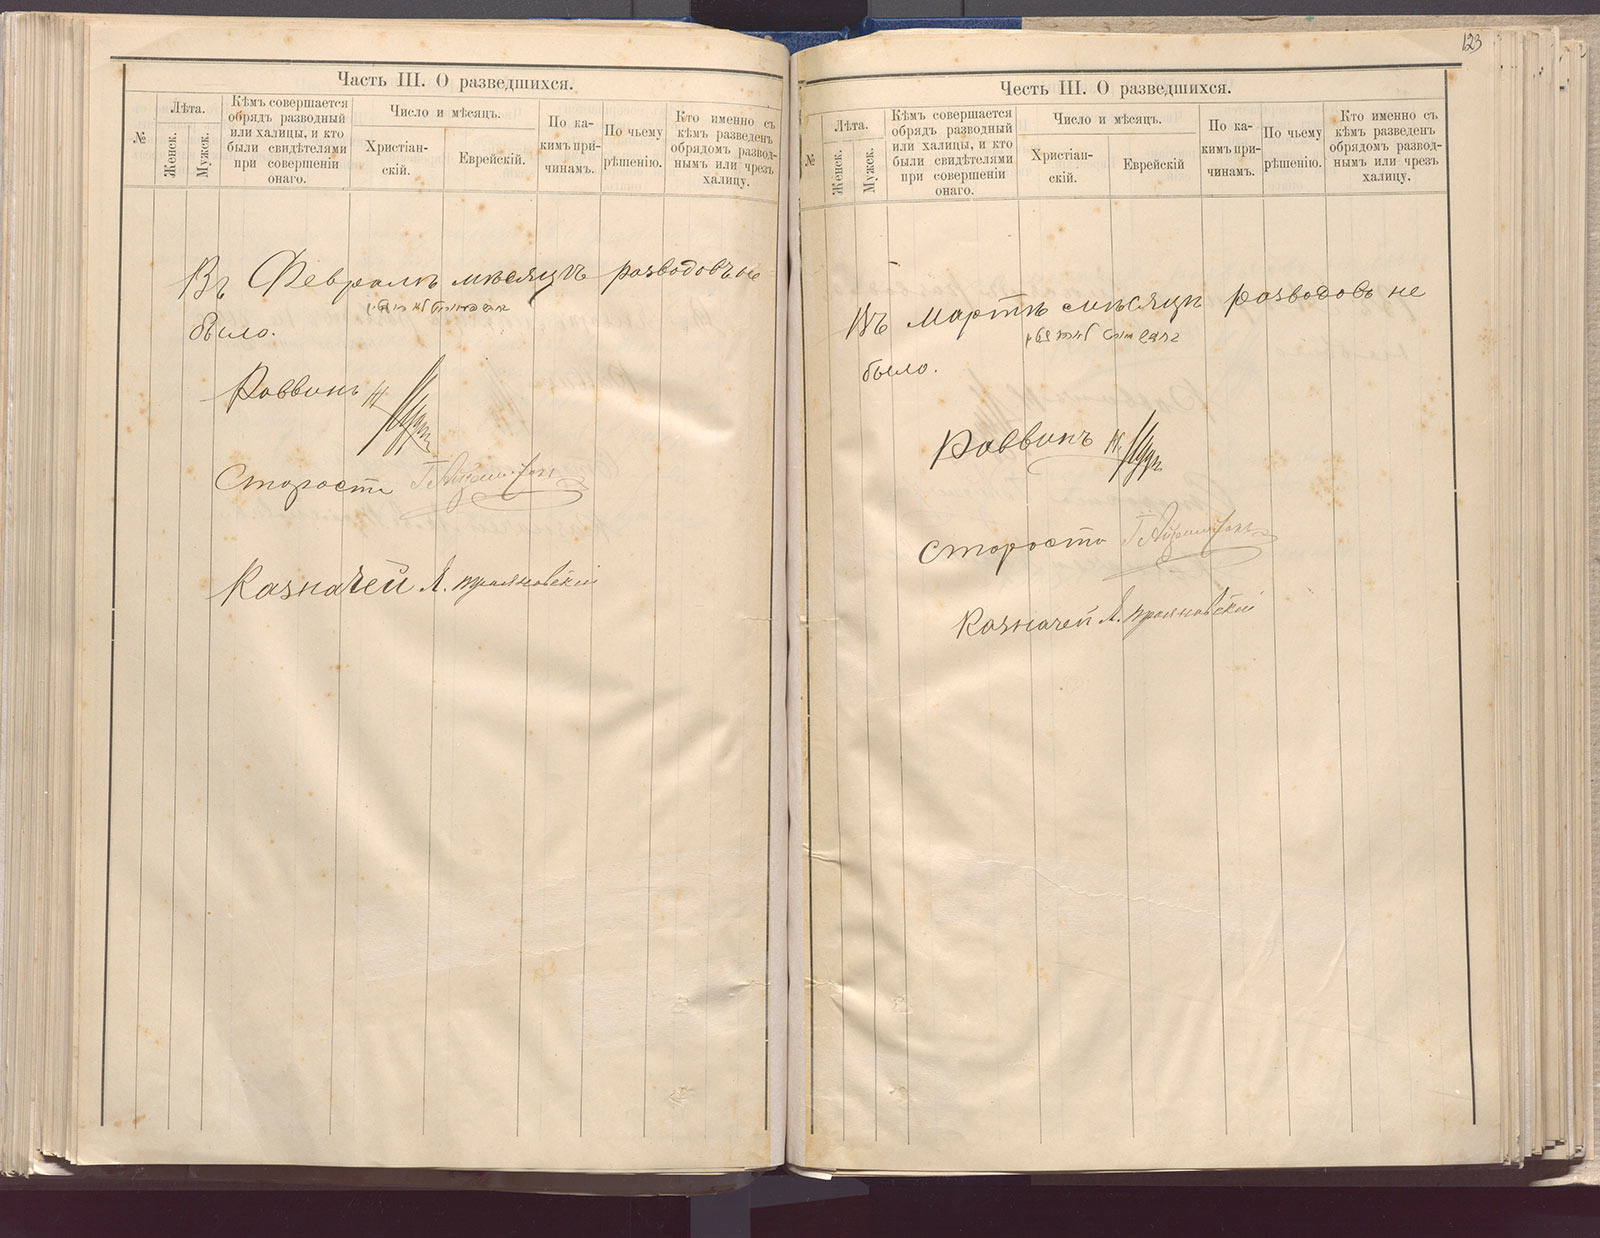 Часть III. О разведшихся.
№
Лѣта.
Женск.
Мужск.
Кѣмъ совершается
обрядъ разводный
или халицы, и кто
были свидѣтелями
при совершеніи
онаго.
Число и мѣсяцъ.
Христіан-
скій.
Еврейскій.
По ка-
кимъ при-
чинамъ.
По чьему
рѣшенію.
Кто именно съ
кѣмъ разведенъ
обрядомъ развод-
нымъ или чрезъ
халицу.
Въ Февралѣ мѣсяцѣ разводовъ не
было.
Раввинъ
Староста
Казначей
123
Честь III. О разведшихся.
№
Лѣта.
Женск.
Мужск.
Кѣмъ совершается
обрядъ разводный
или халицы, и кто
были свидѣтелями
при совершеніи
онаго.
Число и мѣсяцъ.
Христіан-
скій.
Еврейскій
По ка-
кимъ при-
чинамъ.
По чьему
рѣшенію.
Кто именно съ
кѣмъ разведенъ
обрядомъ развод-
нымъ или чрезъ
халицу.
Въ Мартѣ мѣсяцѣ разводовъ не
было.
Раввинъ
Староста
Казначей